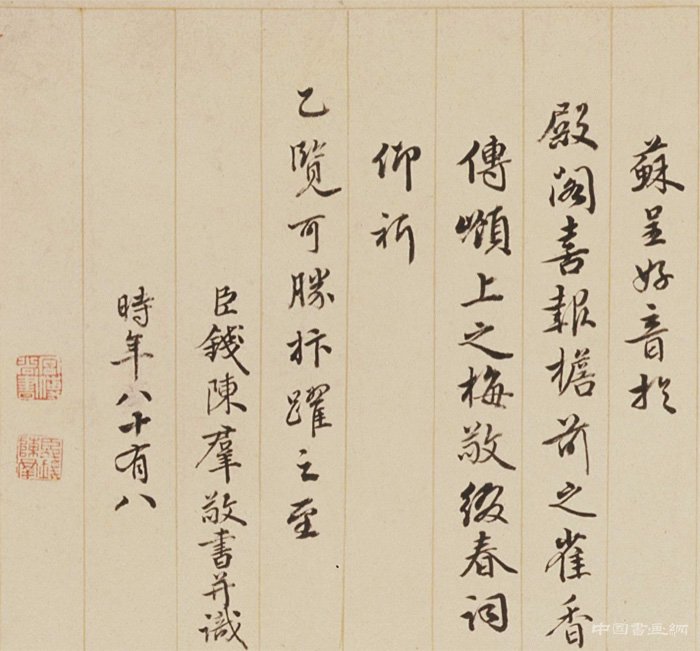 蘇呈好音於
殿閣喜報檐前之雀香
傳嶺上之梅敬綴春詞
仰祈
乙覽可勝抃躍之至
臣錢陳羣敬書并識
時年八十有八
中国書画網